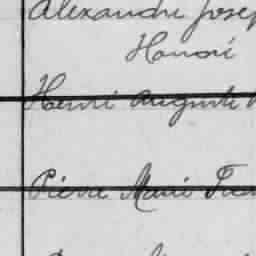 Alexandre Josep
Honoré
Henri Auguste
Pierre Marie